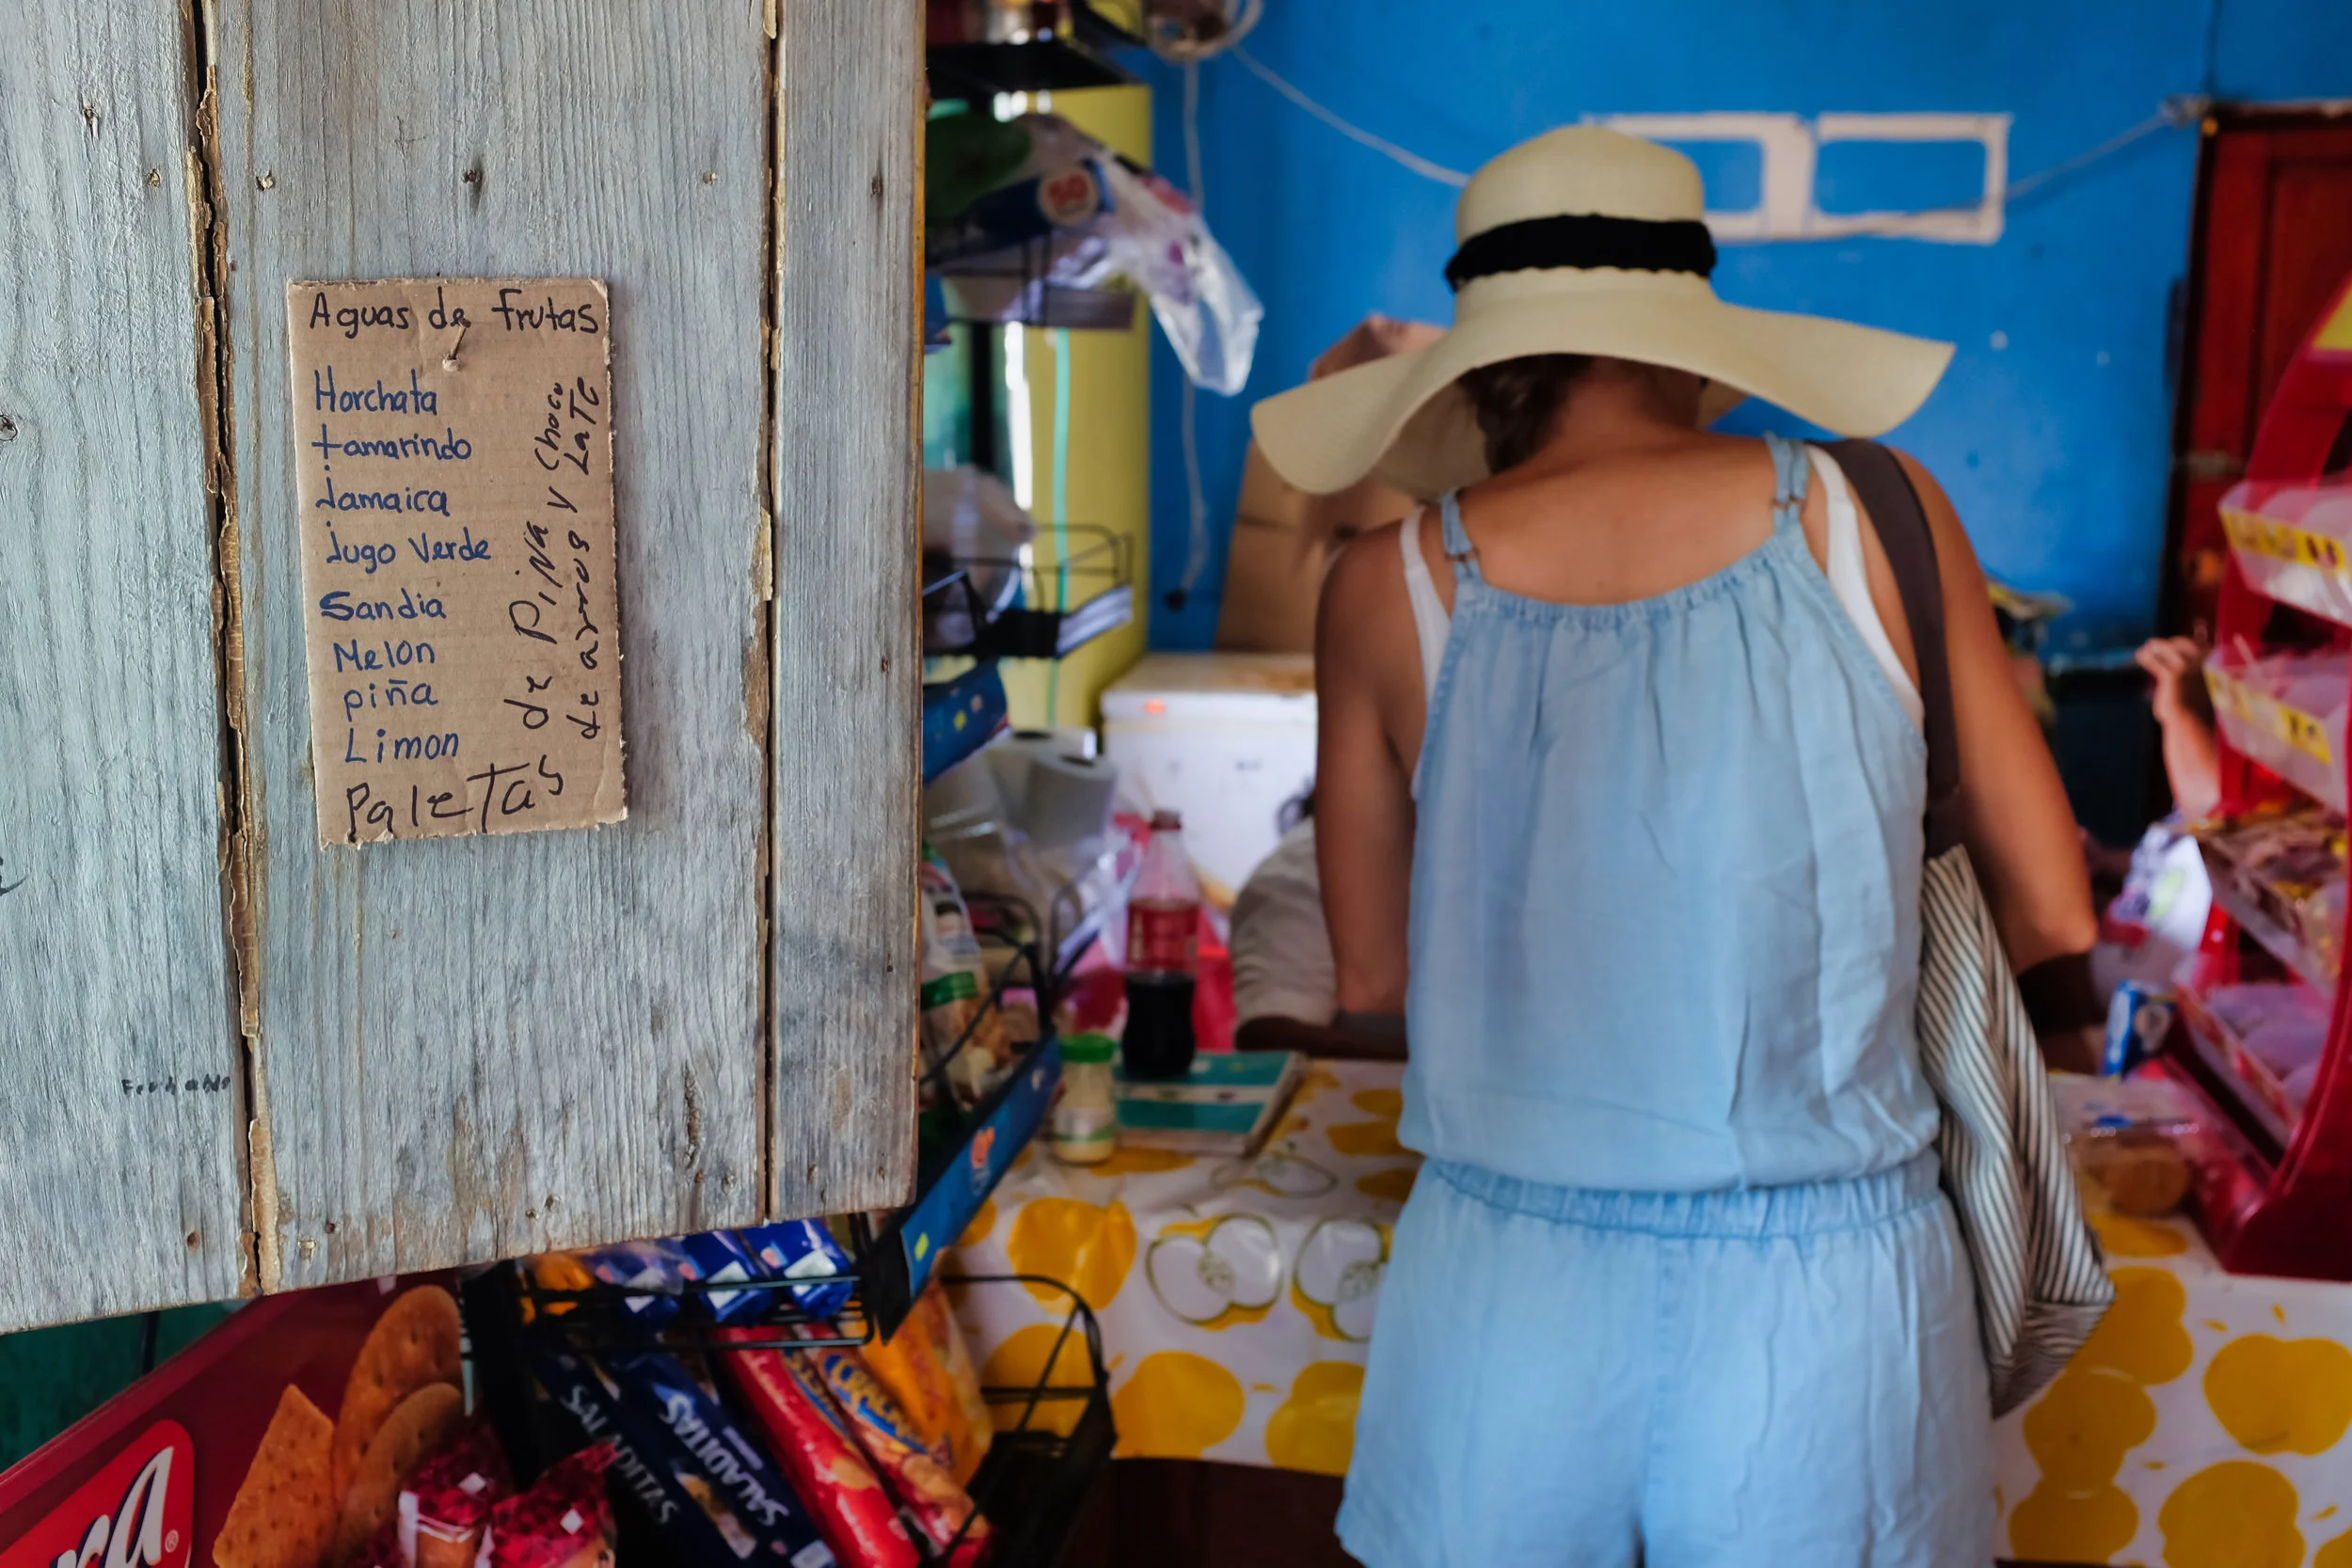 Aguas de frutas
Horchata
tamarindo
jamaica
jugo Verde
Sandia
Melon
piña
Limon
PaleTas
de PiNa y Choco
de arros LaTe
SALADITAS
SALADITAS